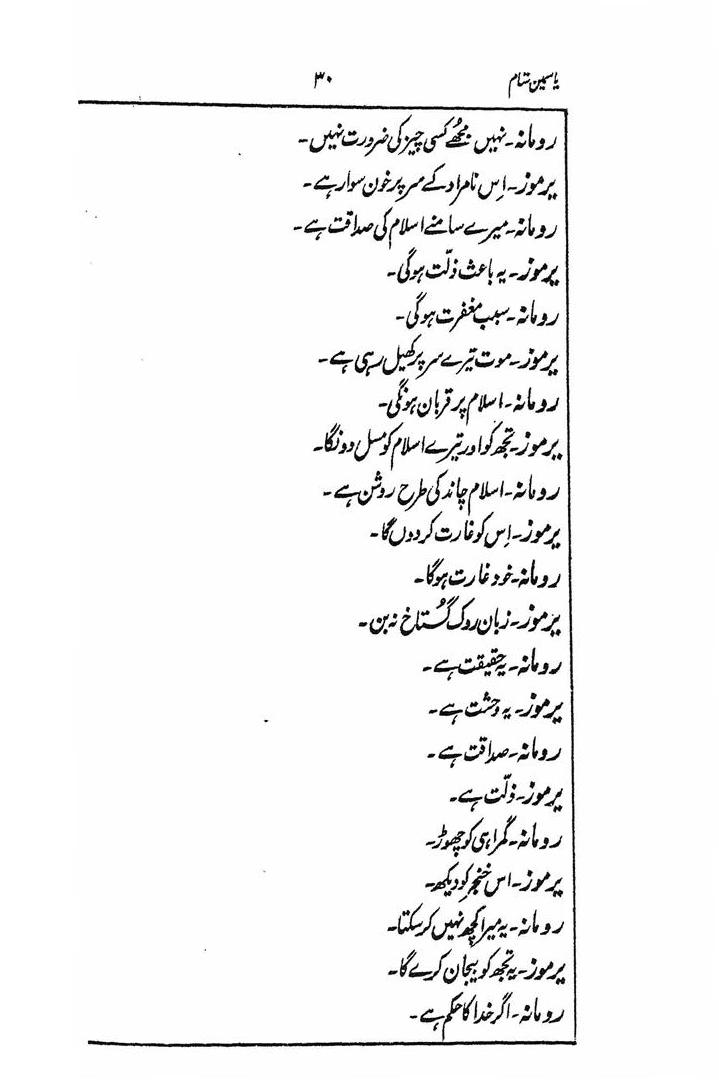 یاسمین شام ۳۰
رومانہ۔ نہیں مجھے کسی چیز کی ضرورت نہیں۔
یرموز۔ اِس نامراد کے سر پر خون سوار ہے۔
رومانہ۔ میرے سامنے اسلام کی صداقت ہے۔
یرموز۔ یہ باعث ذلّت ہوگی۔
رومانہ۔ سبب مغفرت ہوگی۔
یرموز۔ موت تیرے سر پر کھیل رہی ہے۔
رومانہ۔ اسلام پر قربان ہونگی۔
یرموز۔ تجھ کو اور تیرے اسلام کو مسل دونگا۔
رومانہ۔ اسلام چاند کی طرح روشن ہے۔
یرموز۔ اِس کو غارت کردوں گا۔
رومانہ۔ خود غارت ہوگا۔
یرموز۔ زبان روک گُستاخ نہ بن۔
رومانہ۔ یہ حقیقت ہے۔
یرموز۔ یہ وحشت ہے۔
رومانہ۔ صداقت ہے۔
یرموز۔ ذلّت ہے۔
رومانہ۔ گمراہی کو چھوڑ۔
یرموز۔ اس خنجر کو دیکھ۔
رومانہ۔ یہ میرا کچھ نہیں کرسکتا۔
یرموز۔ یہ تجھ کو بیجان کرے گا۔
رومانہ۔ اگر خدا کا حکم ہے۔